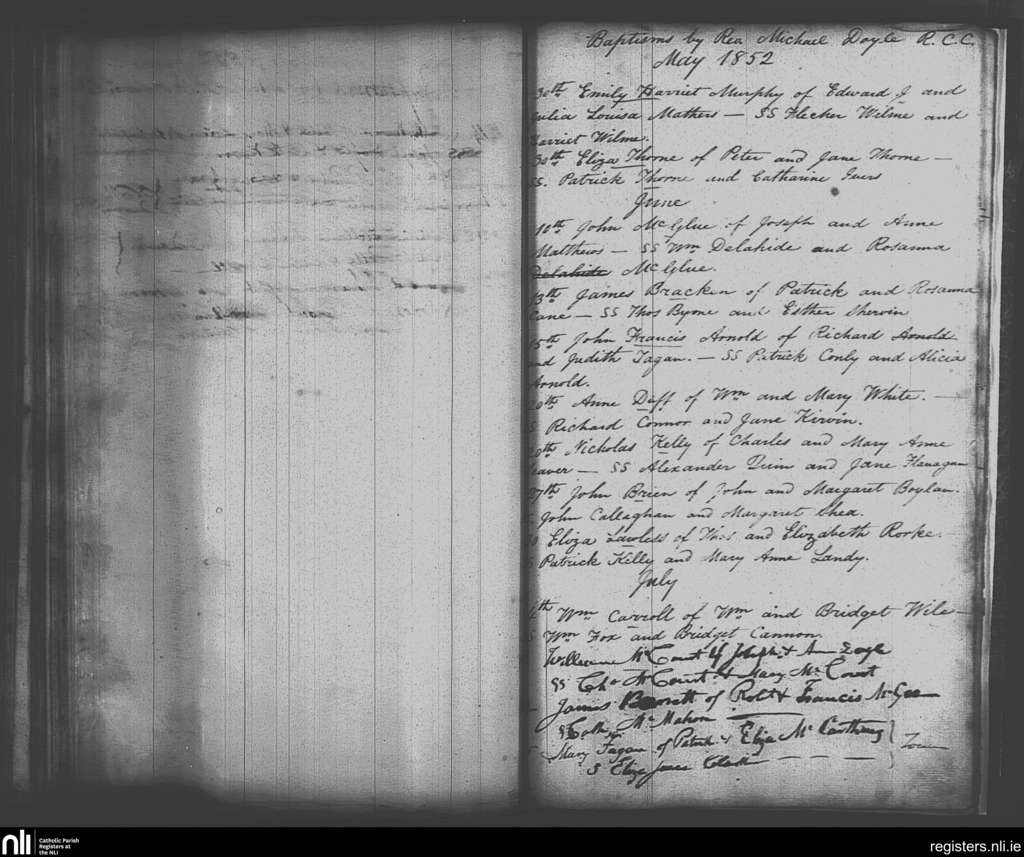 Baptisms by Rev Michael Doyle R.C.C.
May 1852
30th Emily Harriet Murphy of Edward J and
Julia Louisa Mathers — SS Flecker Wilme and
Harriet Wilme.
30th Eliza Thorne of Peter and Jane Thorne —
SS. Patrick Thorne and Catharine
June
10th John McGlue of Joseph and Anne
Matthews — SS Wm Delahide and Rosanna
Delahide McGlue.
13th James Bracken of Patrick and Rosanna
Cane — SS Thos Byrne and Esther Sherwin
15th John Francis Arnold of Richard Arnold
and Judith Fagan. — SS Patrick Conly and Alicia
Arnold.
20th Anne Duff of Wm and Mary White. —
Richard Connor and Jane Kirwin.
20th Nicholas Kelly of Charles and Mary Anne
eaver — SS Alexander Quin and Jane Flanagan
27th John Brien of John and Margaret Boylan.
John Callaghan and Margaret Shea.
Eliza Lawless of Thos and Elizabeth Rorke. —
Patrick Kelly and Mary Anne Landy.
July
4th Wm Carroll of Wm and Bridget Wile
Wm Fox and Bridget Cannon.
William McCourt of Joseph & Ann
SS McCourt & Mary McCourt
James of Robt & Francis McGee
SS Cath McMahon
Mary Fagan of Patrick & Eliza McCarthney
S Eliza Jane
nli
Catholic Parish
Registers at
the NLI
registers.nli.ie